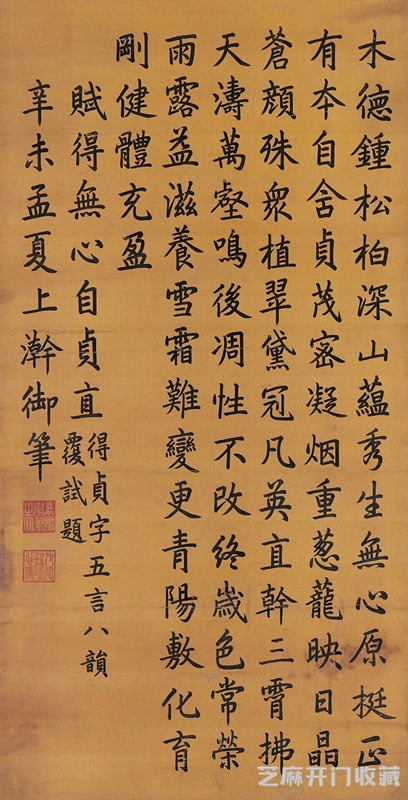 木德鍾松柏深山蘊秀生無心原挺正
有本自含貞茂密凝烟重葱蘢映日晶
蒼顔殊衆植翠黛冠凡英直幹三霄拂
天濤萬壑鳴後凋性不改終歲色常榮
雨露益滋養雪霜難變更青陽敷化育
剛健體充盈
賦得無心自貞直
得貞字五言八韻
覆試題
辛未孟夏上澣御筆
芝麻开门收藏